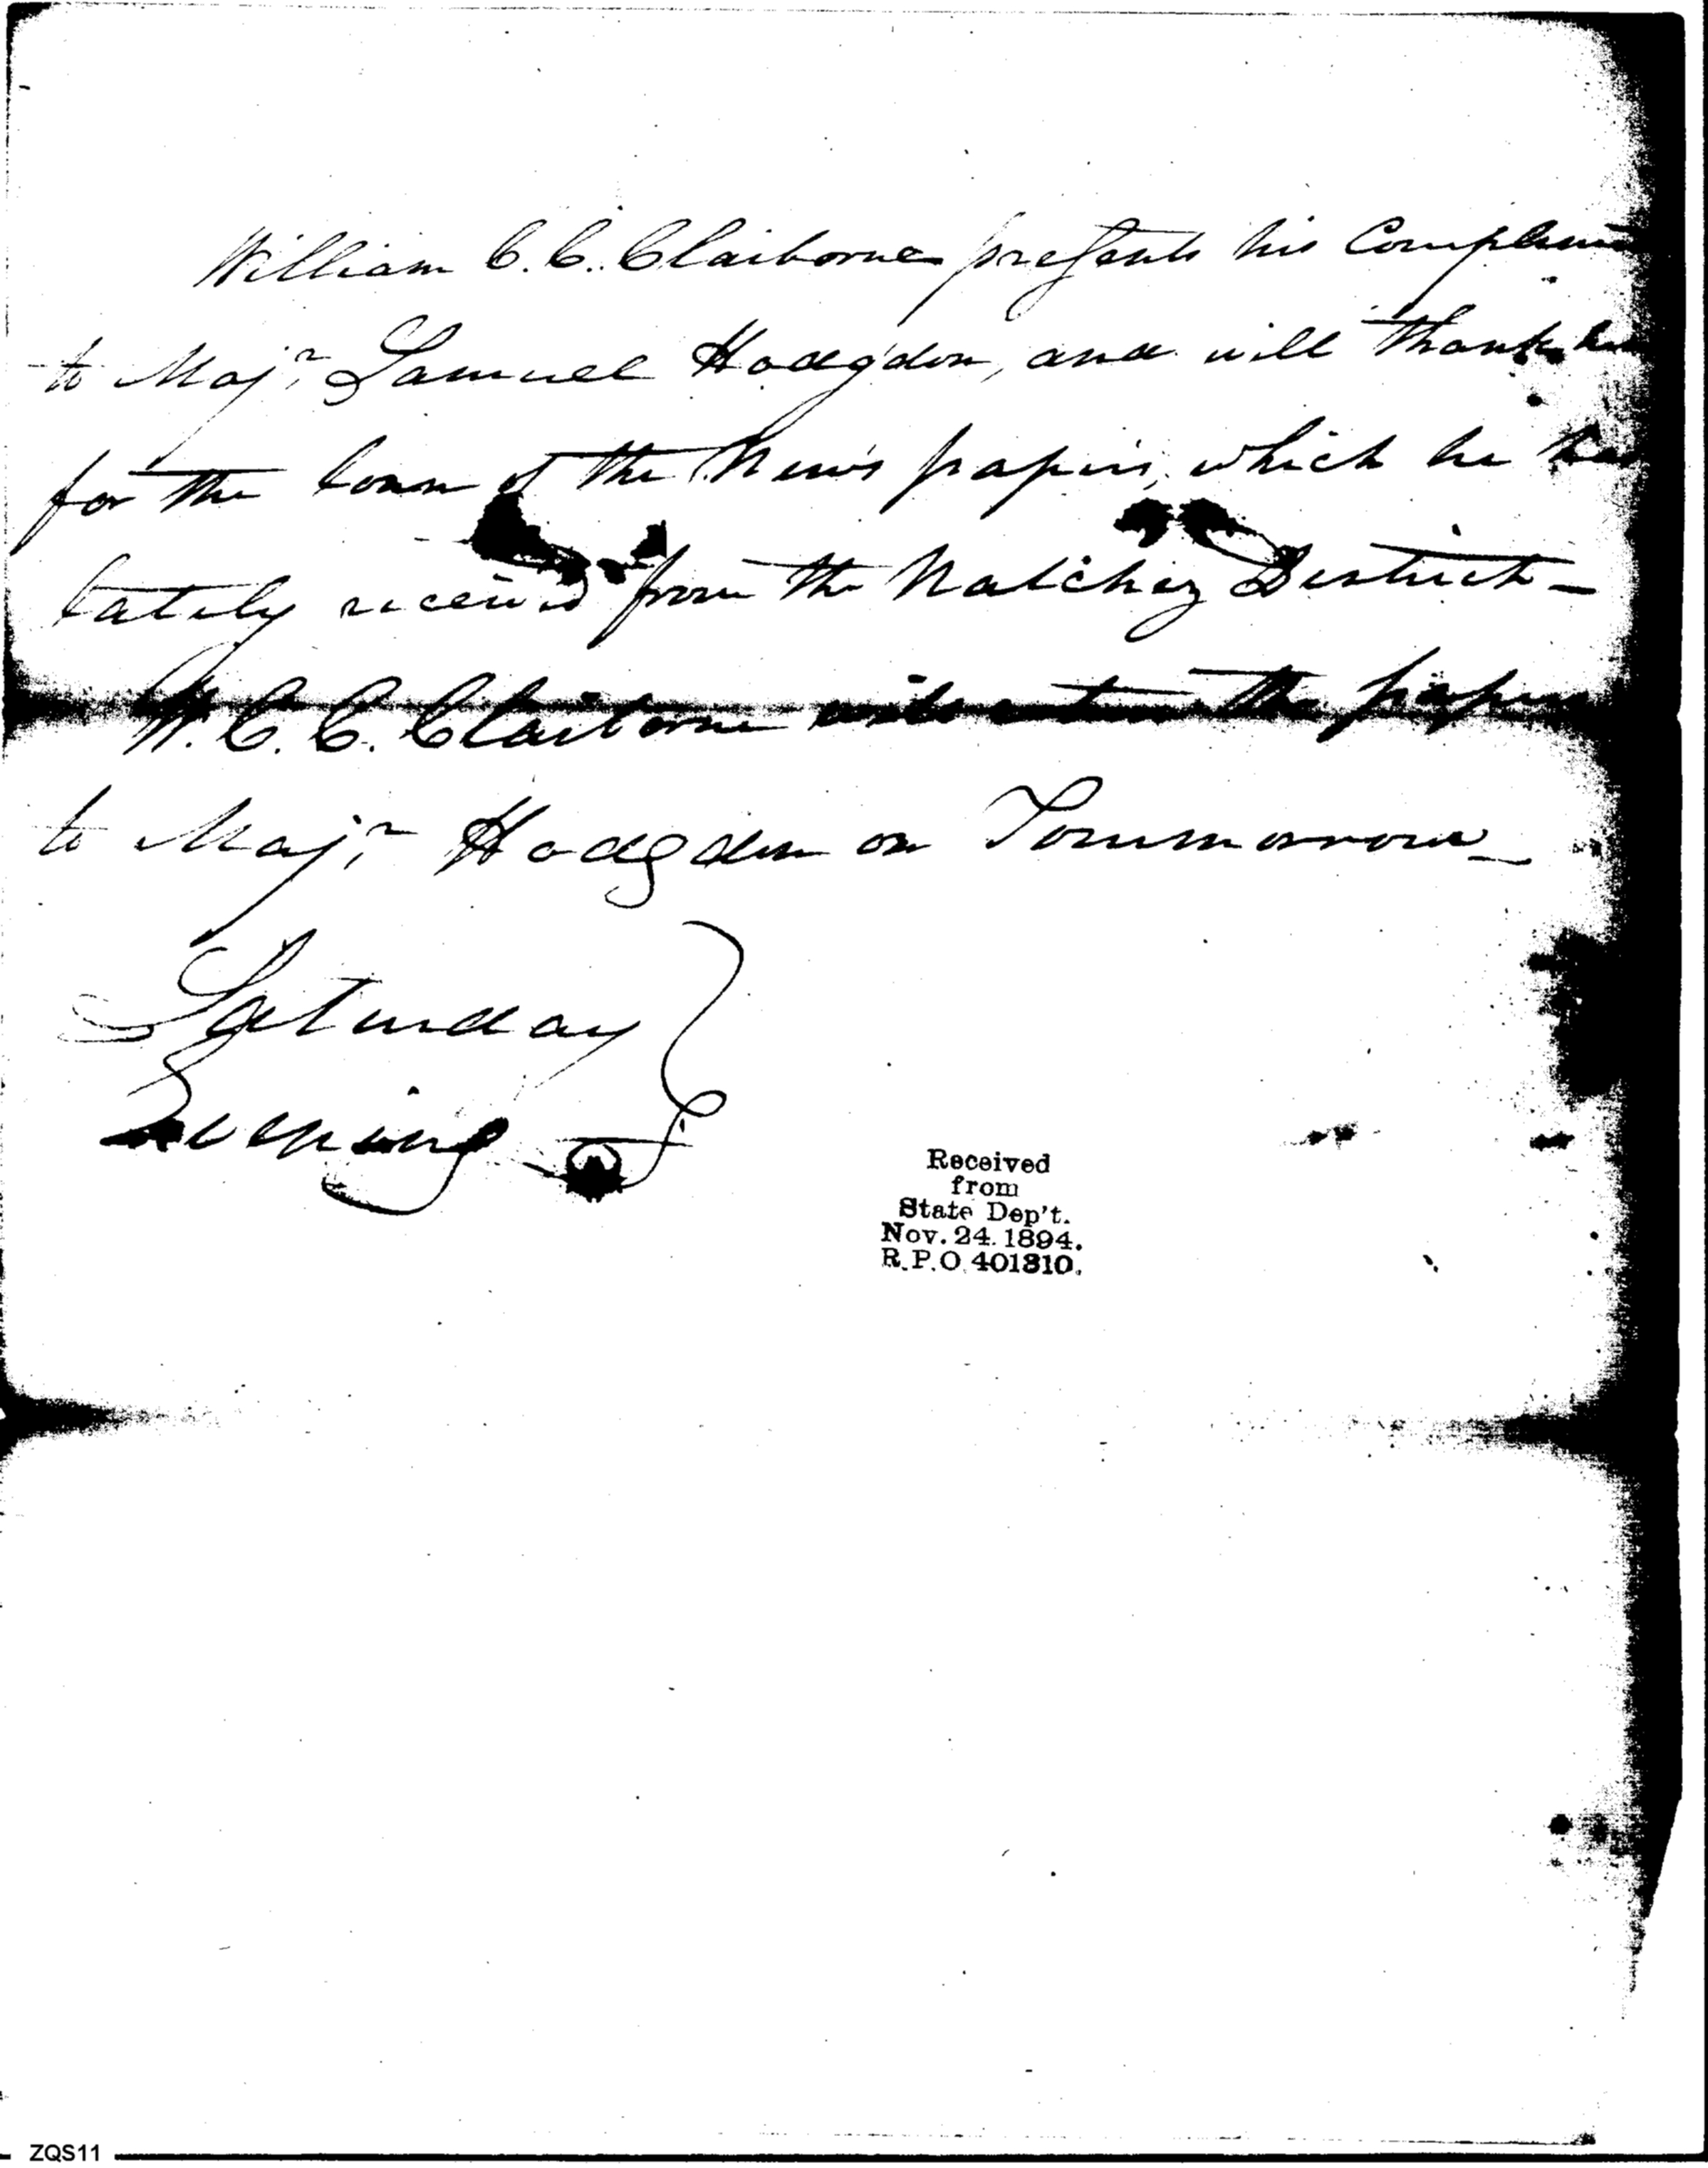 William C. C. Claiborne presents his Complim
to Majr. Samuel Hodgdon, and will thank him
for the loan of the News papers, which he has
lately received from the Natchez District —
W. C. C. Claiborne will return the papers
to Majr. Hodgdon on Tommorrow —
Saturday
Evening
Received
from
State Dep't.
Nov. 24. 1894.
R.P.O. 401310.
ZQS11